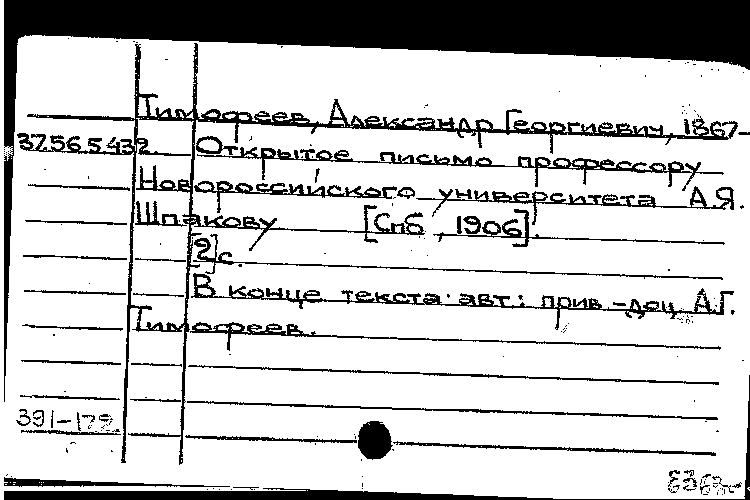 Тимофеев, Александр Георгиевич, 1867-
37.56.5.439. Открытое письмо профессору
Новороссийского университета А.Я.
Шпакову [Спб, 1906].
[2] с.
В конце текста авт: прив-доц А.Г.
Тимофеев.
391-179